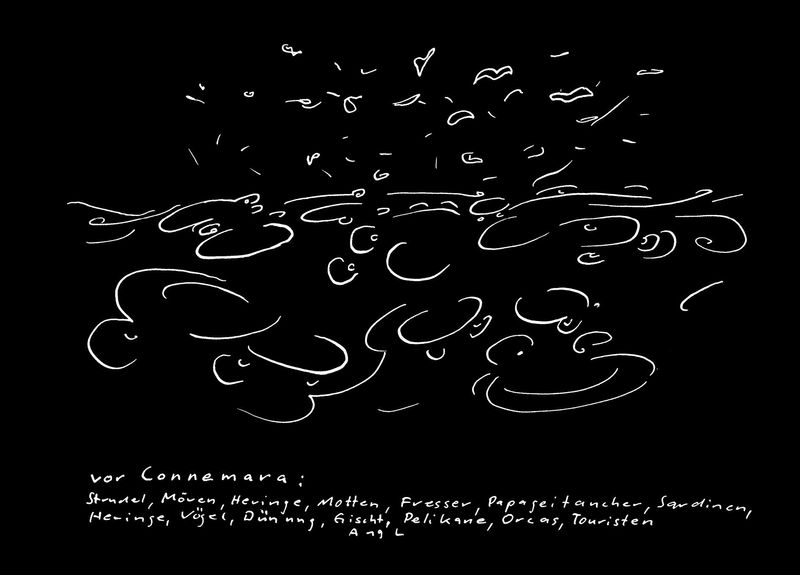 vor Connemara:
Strudel, Möven, Heringe, Motten, Fresser, Papageitaucher, Sardinen,
Heringe, Vögel, Dünung, Gischt, Pelikane, Orcas, Touristen